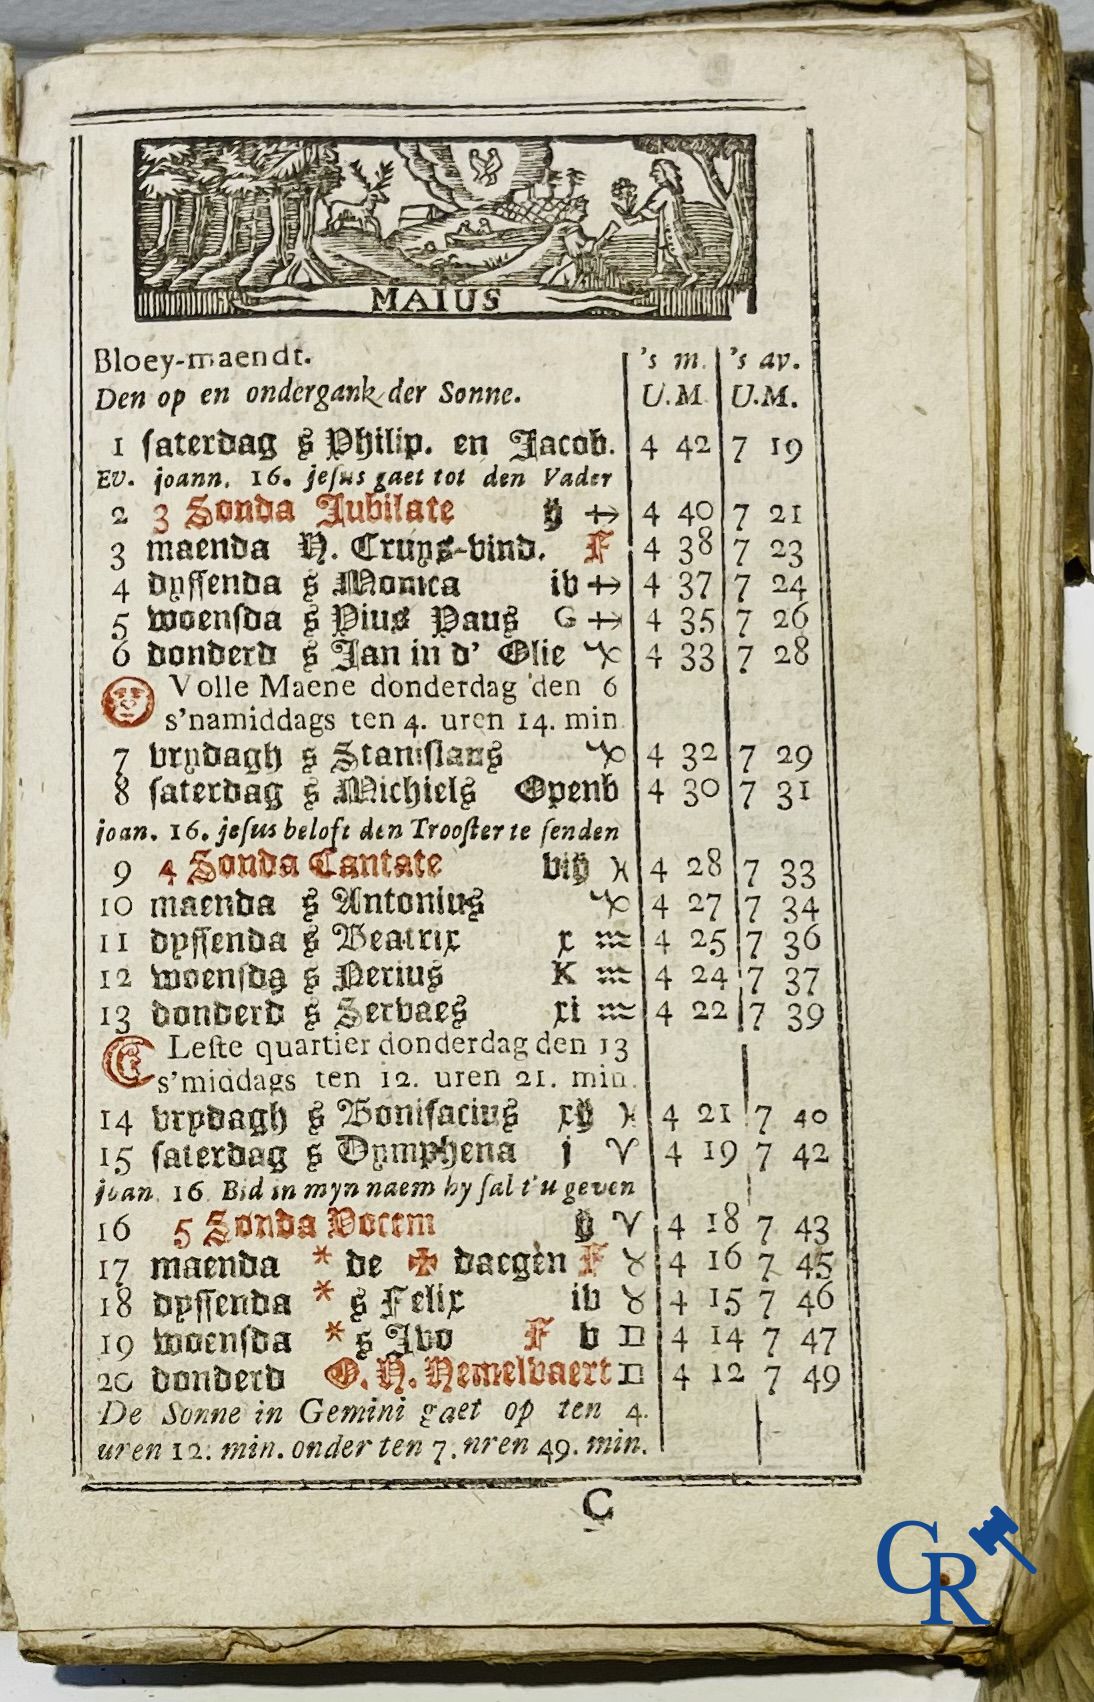 MAIUS
Bloey-maendt. 's m. 's av.
Den op en ondergank der Sonne. U.M U.M.
1 saterdag s Philip. en Jacob. 4 42 7 19
Ev. joann. 16. jesus gaet tot den Vader
2 3 Sonda Jubilate ij ♐ 4 40 7 21
3 maenda H. Cruys-vind. F 4 38 7 23
4 dyssenda s Monica iv ♐ 4 37 7 24
5 woensda s Pius Paus G ♐ 4 35 7 26
6 donderd s Jan in d' Olie ♑ 4 33 7 28
Volle Maene donderdag den 6
s'namiddags ten 4. uren 14. min
7 vrydagh s Stanislaus ♑ 4 32 7 29
8 saterdag s Michiels Openb 4 30 7 31
joan. 16. jesus beloft den Trooster te senden
9 4 Sonda Cantate viij ♓ 4 28 7 33
10 maenda s Antonius ♑ 4 27 7 34
11 dyssenda s Beatrix x ♒ 4 25 7 36
12 woensdag s Nerius K ♒ 4 24 7 37
13 donderd s Servaes xi ♒ 4 22 7 39
Leste quartier donderdag den 13
s'middags ten 12. uren 21. min.
14 vrydagh s Bonifacius xij ♓ 4 21 7 40
15 saterdag s Dymphena j ♈ 4 19 7 42
joan 16. Bid in myn naem hy sal t'u geven
16 5 Sonda Vocem ij ♈ 4 18 7 43
17 maenda * de ✠ daegen F ♉ 4 16 7 45
18 dyssenda * s Felix iv ♉ 4 15 7 46
19 woensda * s Ivo F v ♊ 4 14 7 47
20 donderd O. H. Hemelvaert ♊ 4 12 7 49
De Sonne in Gemini gaet op ten 4.
uren 12. min. onder ten 7. nren 49. min.
C
CR